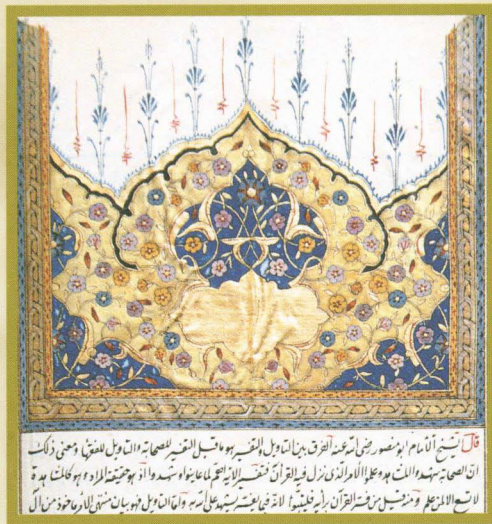 قال الشيخ الامام ابو منصور رضى الله عنه الفرق بين التاويل والتفسير هو ما قيل التفسير للصحابة والتاويل للفقهاء ومعنى ذلك
ان الصحابة شهدوا المشاهد وعلموا الامر الذى نزل فيه القرآن فتفسير الاية اهم لما عاينوا وشهدوا اذ هو حقيقة المراد وهو كالمشاهدة
لا تسمح الا لمن علم ومنه قيل من فسر القرآن برأيه فليتبوأ لانه فيما يفسر يشهد على الله به واما التاويل فهو بيان منتهى الامر ماخوذ من آل